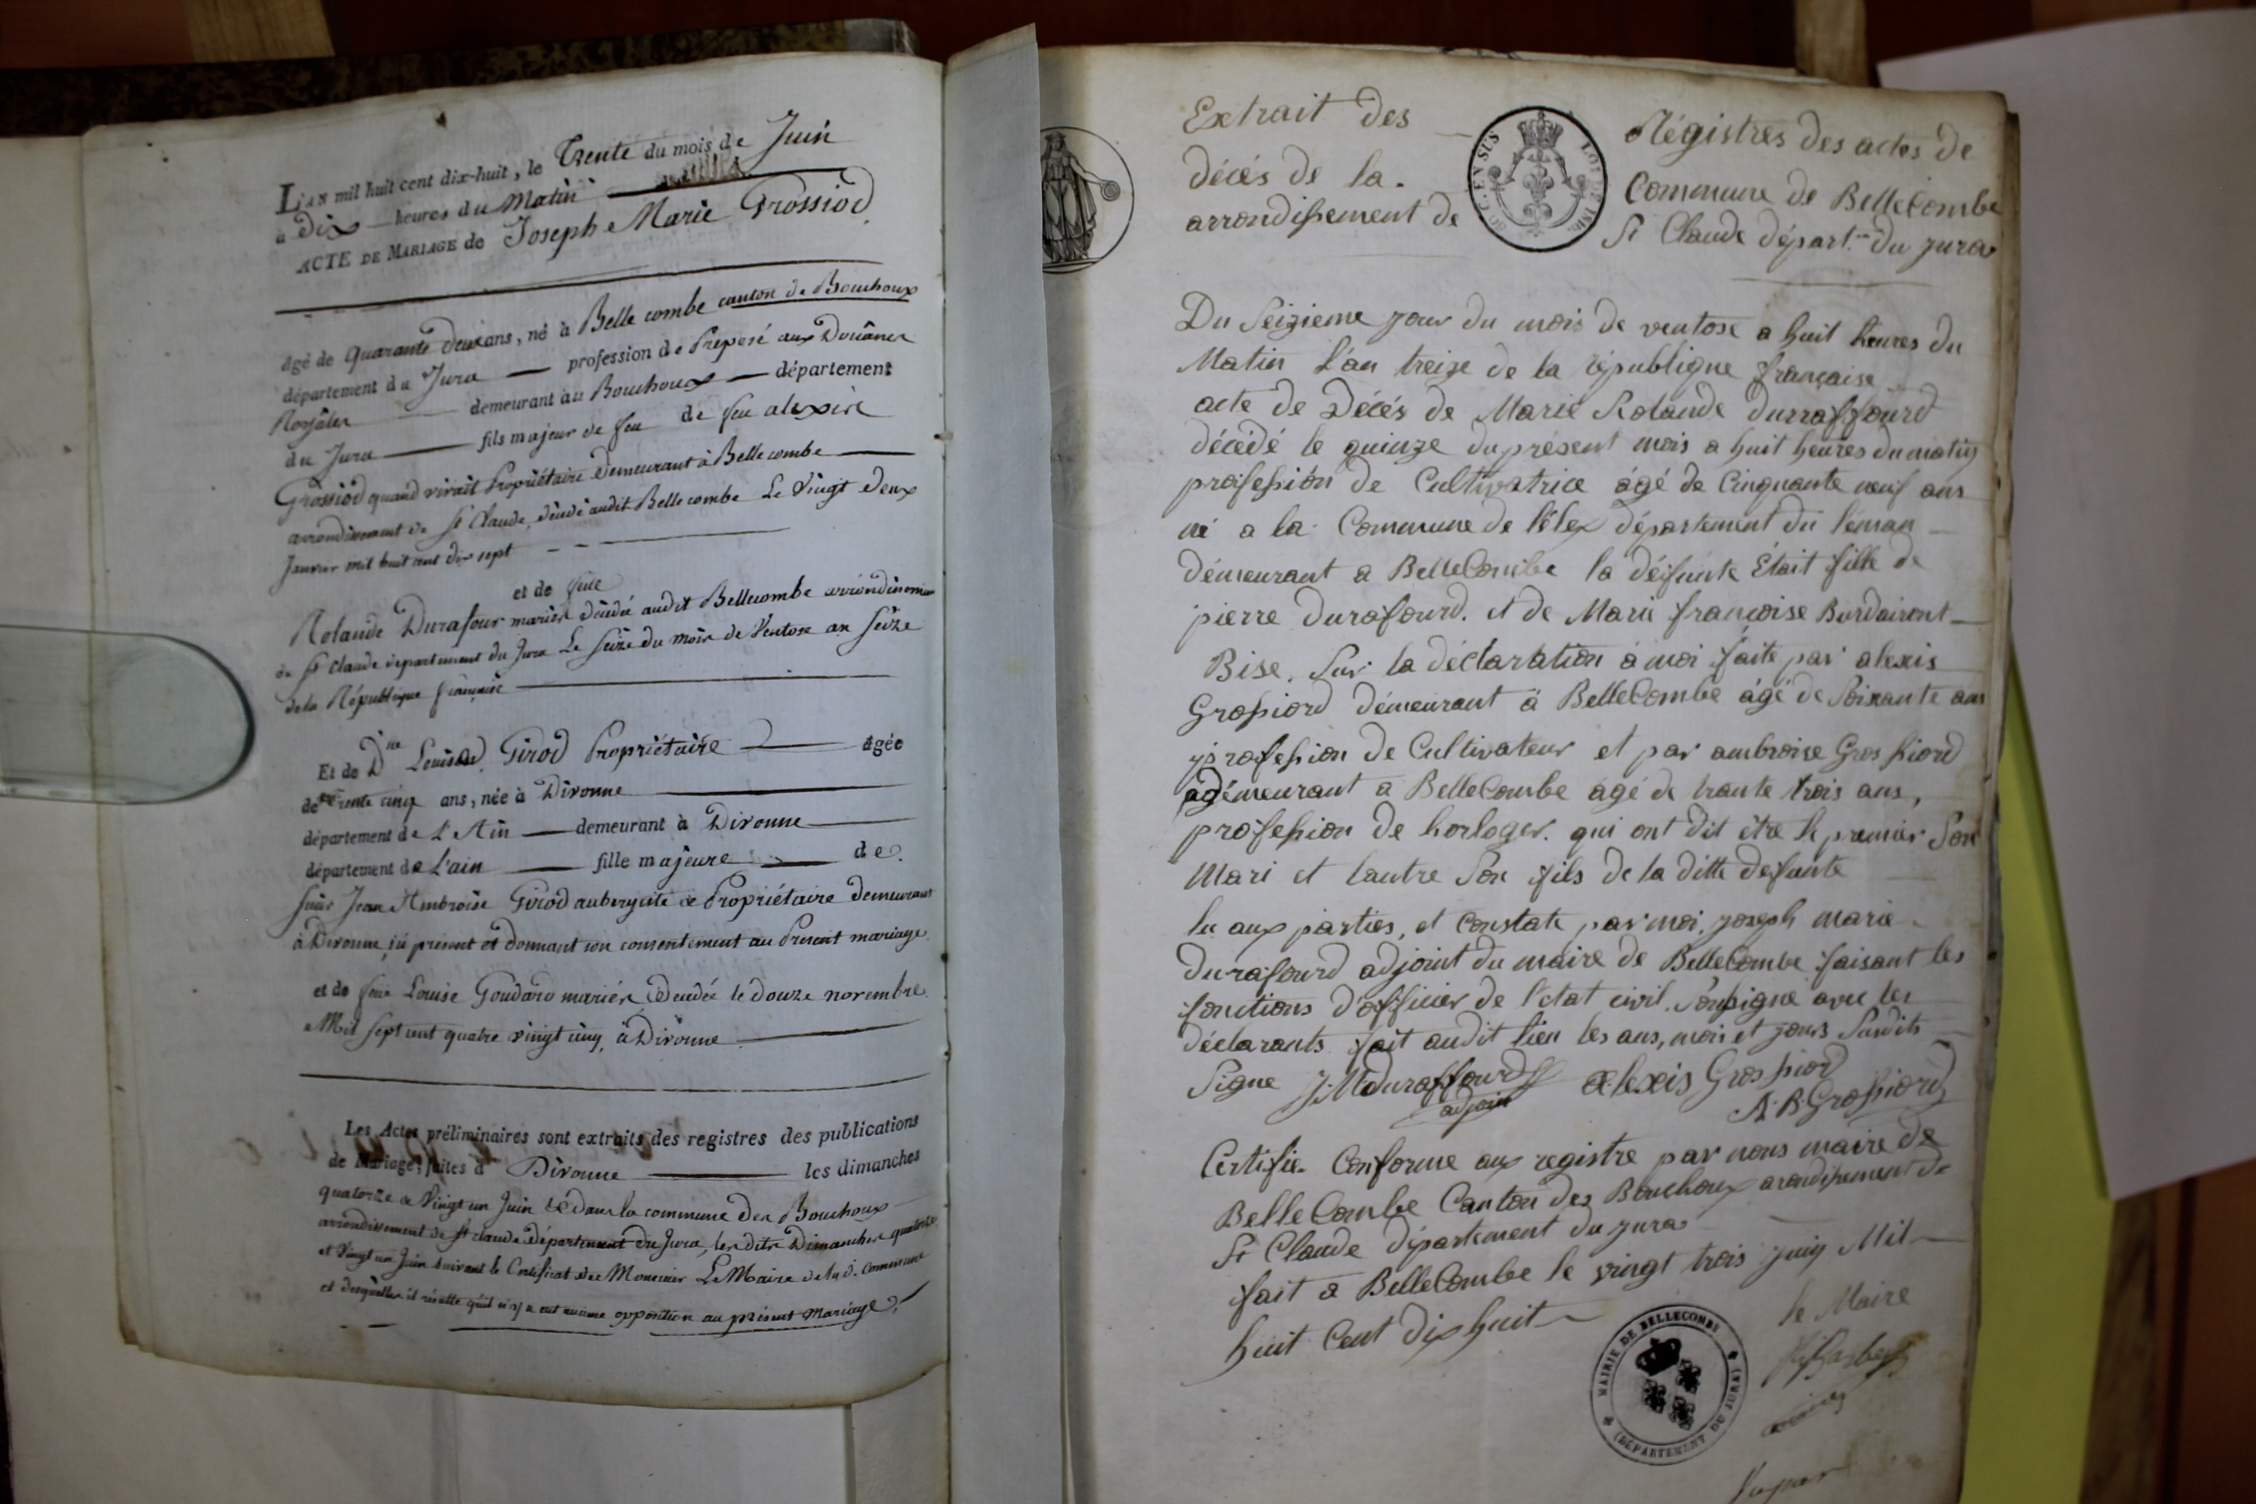 L'AN mil huit cent dix-huit, le Trente du mois de Juin
à Dix heures du Matin
ACTE DE MARIAGE de Joseph Marie Grossiod
âgé de quarante deux ans, né à Belle combe canton de Bouchoux
département du Jura profession de Préposé aux Douânes
Royâles demeurant au Bouchoux département
du Jura fils majeur de feu de feu alexis
Grossiod quand vivait Propriétaire demeurant à Belle combe
arrondissement de St Claude, décédé audit Belle combe Le Vingt deux
Janvier mil huit cent dix sept
et de feue
Rolande Durafour mariés décédée audit Bellecombe arrondissement
de St Claude département du Jura Le Seize du mois de Ventose an Seize
de la République française
Et de Dlle Louise Girod Propriétaire agée
de Trente cinq ans, née à Divonne
département de L'Ain demeurant à Divonne
département de L'ain fille majeure de
Jean Ambroise Girod aubergiste & Propriétaire demeurant
à Divonne, ici présent et donnant son consentement au Présent mariage
et de feue Louise Goudard mariés, Décédée le douze novembre
Mil sept cent quatre vingt cinq, à Divonne
Les Actes préliminaires sont extraits des registres des publications
de Mariage, faites à Divonne les dimanches
quatorze & Vingt un Juin & dans la commune des Bouchoux
arrondissement de St claude Département du Jura, les dits Dimanches quatorze
et Vingt un Juin suivant le Certificat de Monsieur Le Maire de lad. commune
et desquelles il résulte qu'il n'y a eut aucune opposition au présent Mariage,
Extrait des Régistres des actes de
décés de la Commune de BelleCombe
arrondissement de St Claude départ. du jura
Du Seizieme jour du mois de ventose a huit heures du
Matin L'an treize de la république française
acte de Décés de Marie Rolande durraffourd
décédé le quinze du présent mois a huit heures du matin
profession de Cultivatrice âgé de Cinquante neuf ans
né a la Commune de lélex département du léman
démeurant a BelleCombe la défunte Était fille de
pierre durafourd. et de Marie françoise Burdairont
Bise. Sur la déclaration a moi faite par alexis
Grossiord démeurant à BelleCombe âgé de Soixante ans
profession de Cultivateur et par ambroise Grossiord
démeurant a BelleCombe âgé de trante trois ans,
profession de horloger. qui ont dit être le premier Son
Mari et lautre Son fils de la ditte defunte
lu aux parties, et Constate par moi, joseph marie
durafourd adjoint du maire de BelleCombe faisant les
fonctions d'officier de l'état civil. Soussigne avec les
déclarants fait audit lieu les ans, mois et jours Susdits
Signe J. M duraffourd alexis Grossiord
adjoin A. B. Grossiord
Certifie Conforme aux registre par nous maire de
BelleCombe Canton des Bouchoux arondissement de
St Claude département du jura
fait a BelleCombe le vingt trois juin Mil
huit Cent Dix huit
le Maire
MAIRIE DE BELLECOMBE
(DÉPARTEMENT DU JURA)